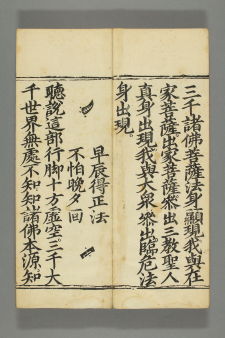 三千諸佛菩薩法身顯現我與在
家菩薩出家菩薩叅出三教聖人
真身出現我與大衆叅出臨危法
身出現
早辰得正法
不怕晚夕回
聽說這部行脚十方虛空三千大
千世界無處不知知諸佛本源知